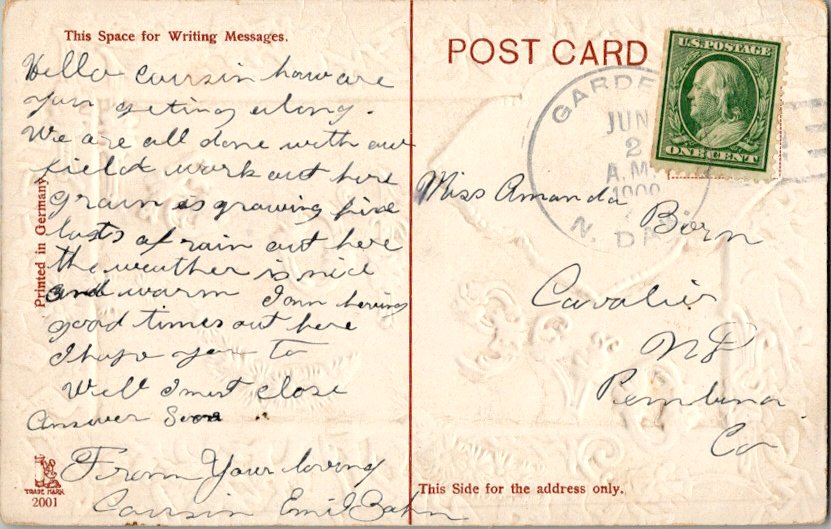 This Space for Writing Messages.
Hello cousin how are
you getting along.
We are all done with our
field work out here
grain is growing fine
lasts of rain out here
the weather is nice
and warm I am having
good times out here
I hope you to
Well I must close
Answer Soon
From Your loving
Cousin Emil Bahn
Printed in Germany
TRADE MARK
2001
POST CARD
U.S. POSTAGE
ONE CENT
GARDE
JUN
2
A.M.
1909
N. DA
Miss Amanda
Born
Cavalier
ND
Pembina
Co
This Side for the address only.